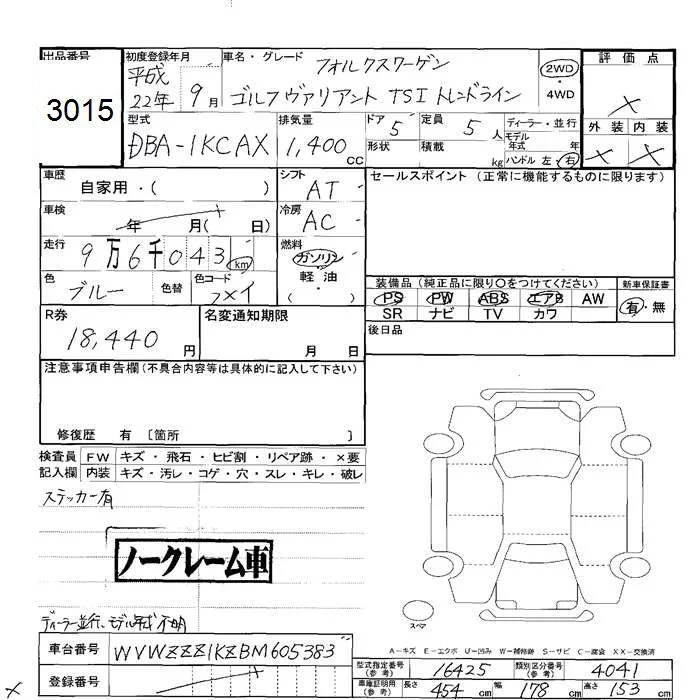 出品番号
3015
初度登録年月
平成
22年 9月
車名・グレード
フォルクスワーゲン
ゴルフヴァリアント TSI トレンドライン
2WD
・
4WD
評価点
×
外装 内装
× ×
型式
DBA-1KCAX
排気量
1,400
cc
ドア 5
形状
定員 5 人
積載 kg
ディーラー・並行
モデル
年式 年
ハンドル 左・右
車歴
自家用・( )
シフト
AT
セールスポイント (正常に機能するものに限ります)
車検
年 月( 日)
冷房
AC
走行
9万6千043km
燃料
ガソリン
軽油
・
( )
色
ブルー
色替
色コード
装備品 (純正品に限り○をつけてください)
PS PW ABS エアB AW
SR ナビ TV カワ
新車保証書
有・無
R券
18,440円
名変通知期限
月 日
後日品
注意事項申告欄(不具合内容等は具体的に記入して下さい)
修復歴 有 〔箇所 〕
検査員
記入欄
FW キズ・飛石・ヒビ割・リペア跡・×要
内装 キズ・汚レ・コゲ・穴・スレ・キレ・破レ
ステッカー有
ノークレーム車
ディーラー並行、モデル年式不明
スペア
A-キズ E-エクボ U-凹み W-補修跡 S-サビ C-腐食 XX-交換済
車台番号
WVWZZZ1KZBM605383
登録番号
型式指定番号
(参考)
16425
類別区分番号
(参考)
4041
車庫証明用
(参考)
長さ 454cm 幅 178cm 高さ 153cm
×